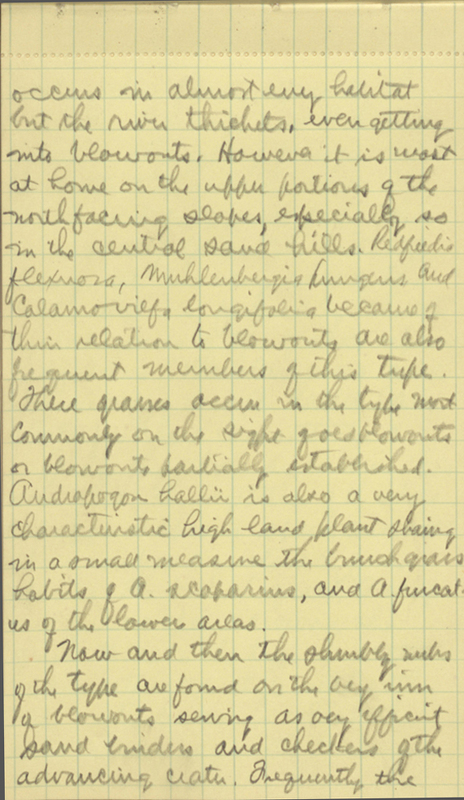 occurs in almost every habitat
but the river thickets, even getting
into blowouts. However it is most
at home on the upper portions of the
north facing slopes, especially so
in the central sand hills. Redfieldia
flexuosa, Muhlenbergia pungens and
Calamovilfa longifolia because of
their relation to blowouts are also
frequent members of this type.
These grasses occur in the type most
commonly on the sight of old blowouts
or blowouts partially established.
Andropogon hallii is also a very
characteristic high land plant sharing
in a small measure the bunch grass
habits of A. scoparius, and A. furcat-
us of the lower areas.
Now and then the shrubby
of the type are found on the very
of blowouts serving as very efficient
sand binders and checkers of the
advancing crater. Frequently the